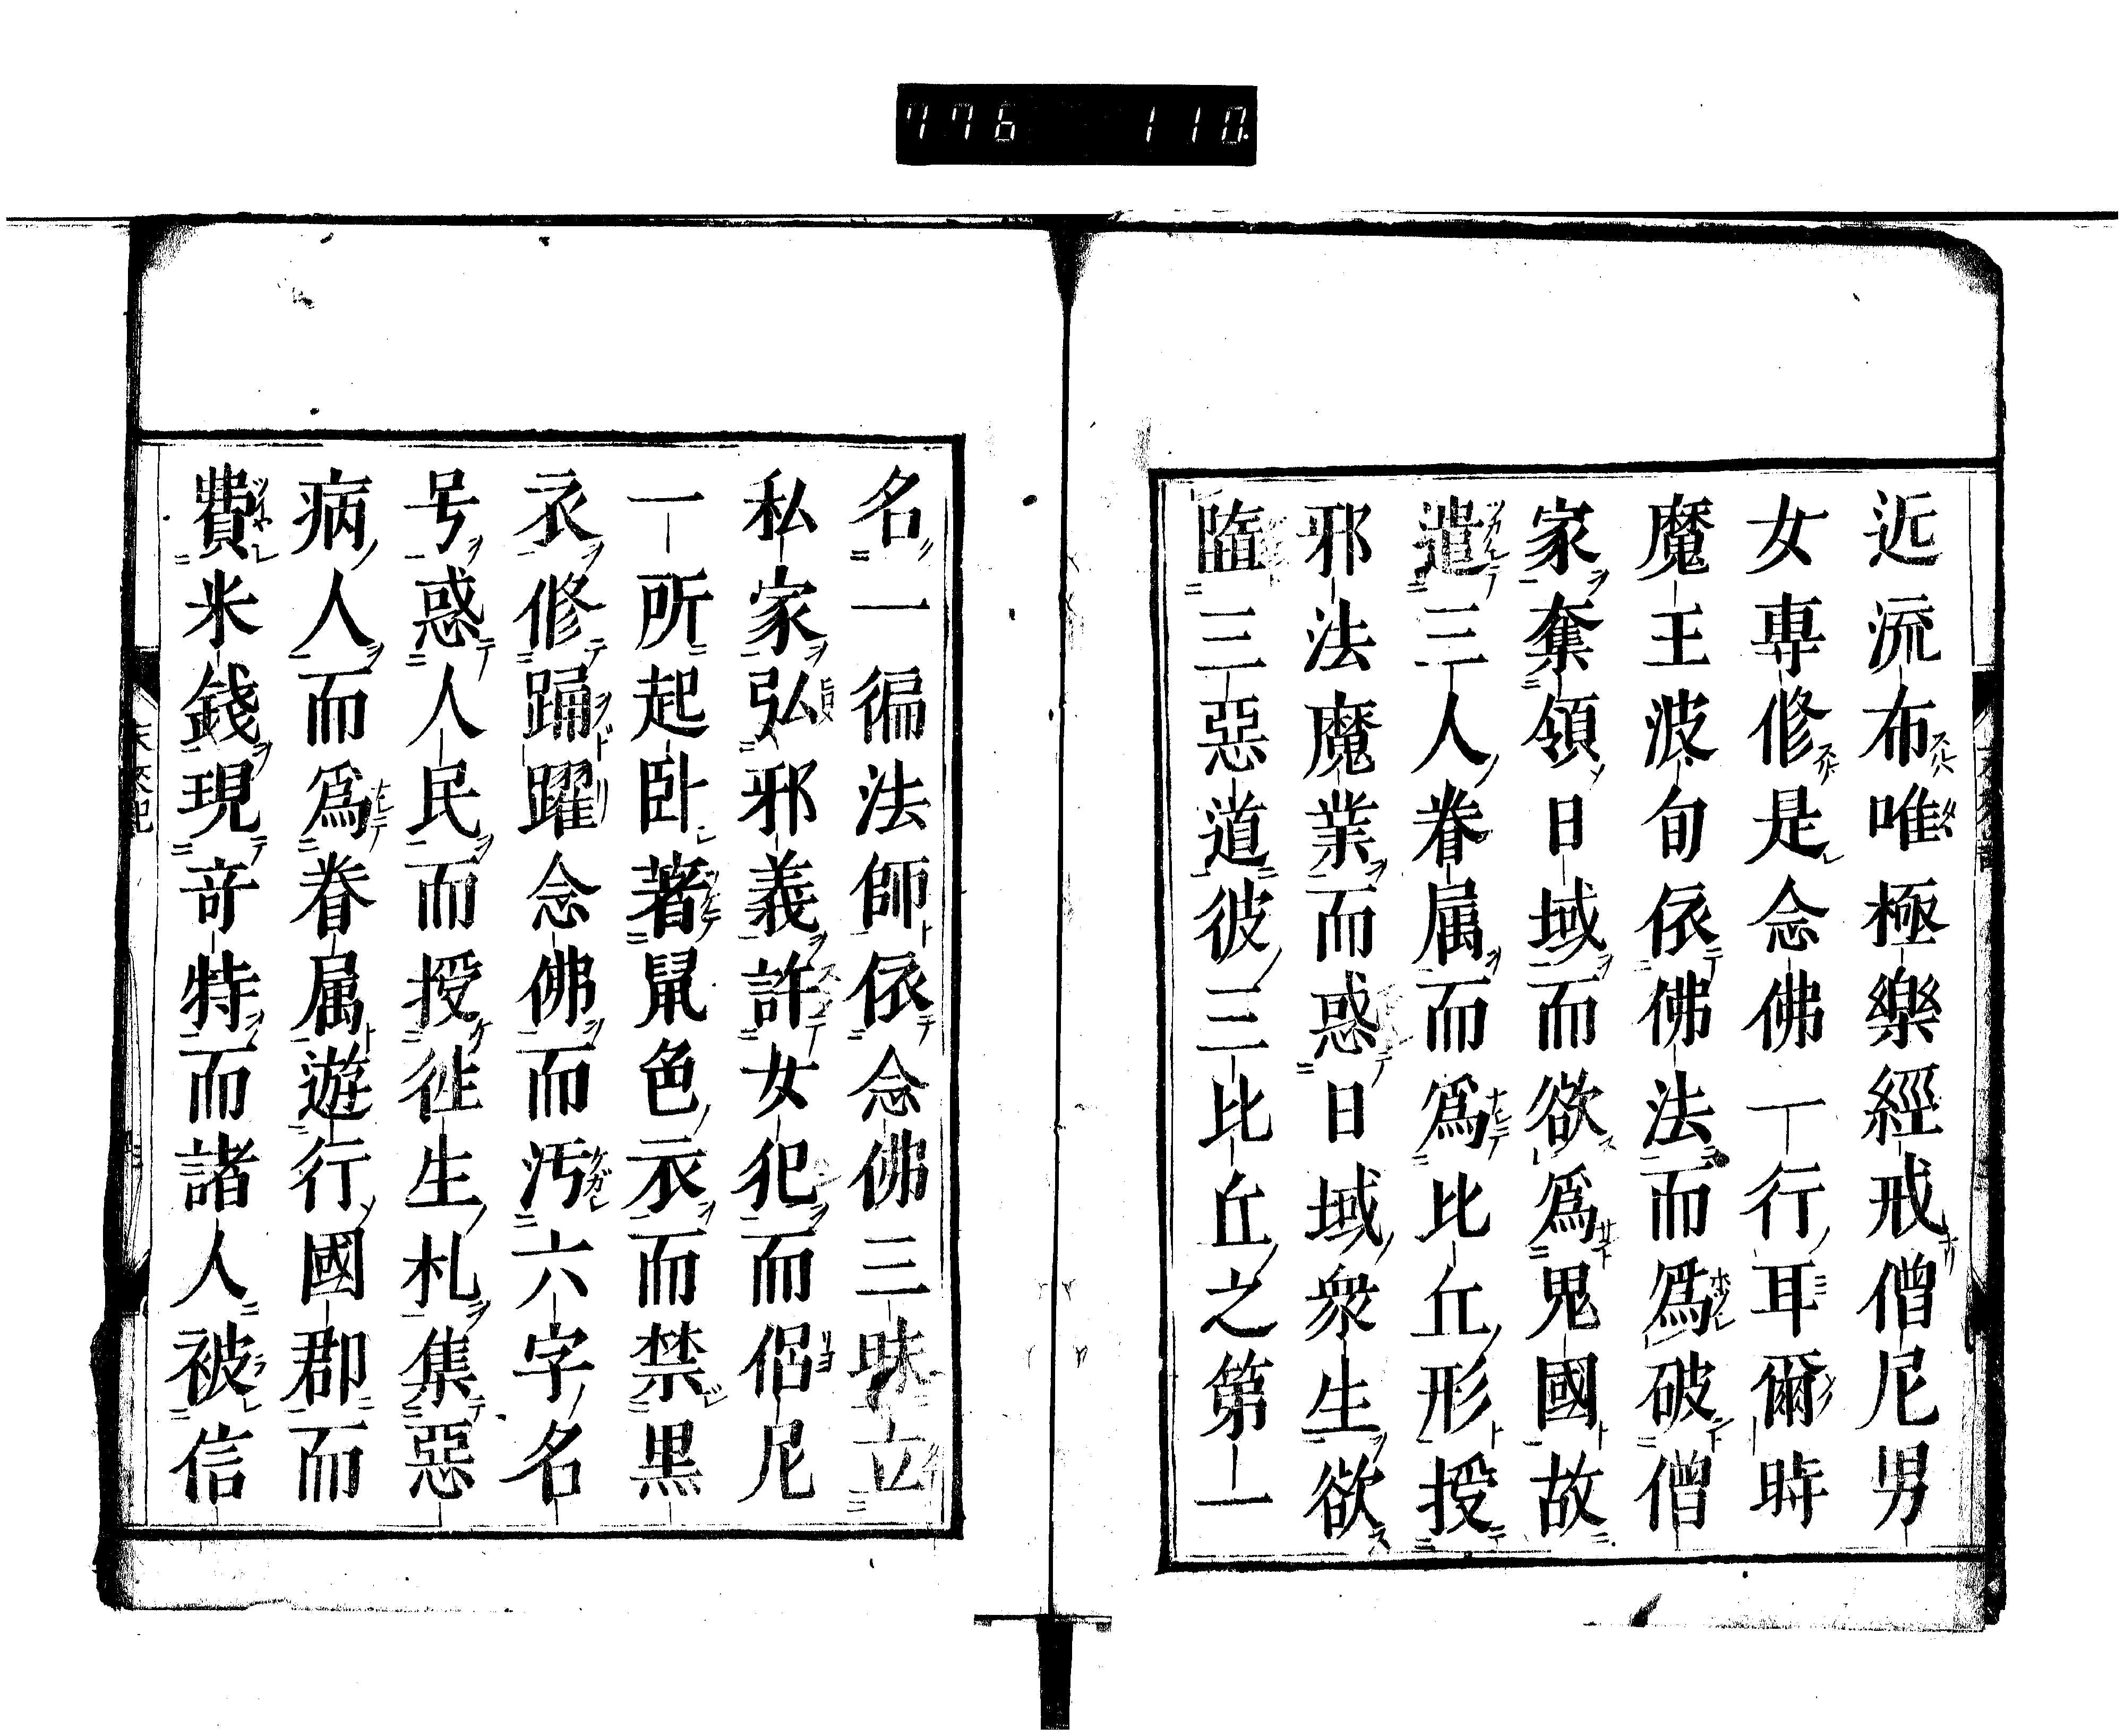 776 110
近流布唯極樂經戒僧尼男
女專修是念佛一行耳爾時
魔王波旬依佛法而爲破僧
家奪領日域而欲爲鬼國故
遣三人眷属而爲比丘形授
邪法魔業而惑日域衆生欲
墮三惡道彼三比丘之第一
名一徧法師依念佛三昧立
私家弘邪義許女犯而侶尼
一所起臥著鼠色衣而禁黒
衣修踊躍念佛而汚六字名
号惑人民而授徃生札集惡
病人而爲眷属遊行國郡而
費米錢現竒特而諸人被信